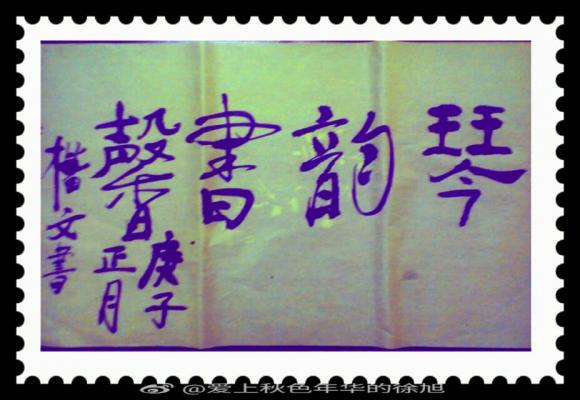 琴韵書馨
庚子
正月
文書
@爱上秋色年华的徐旭